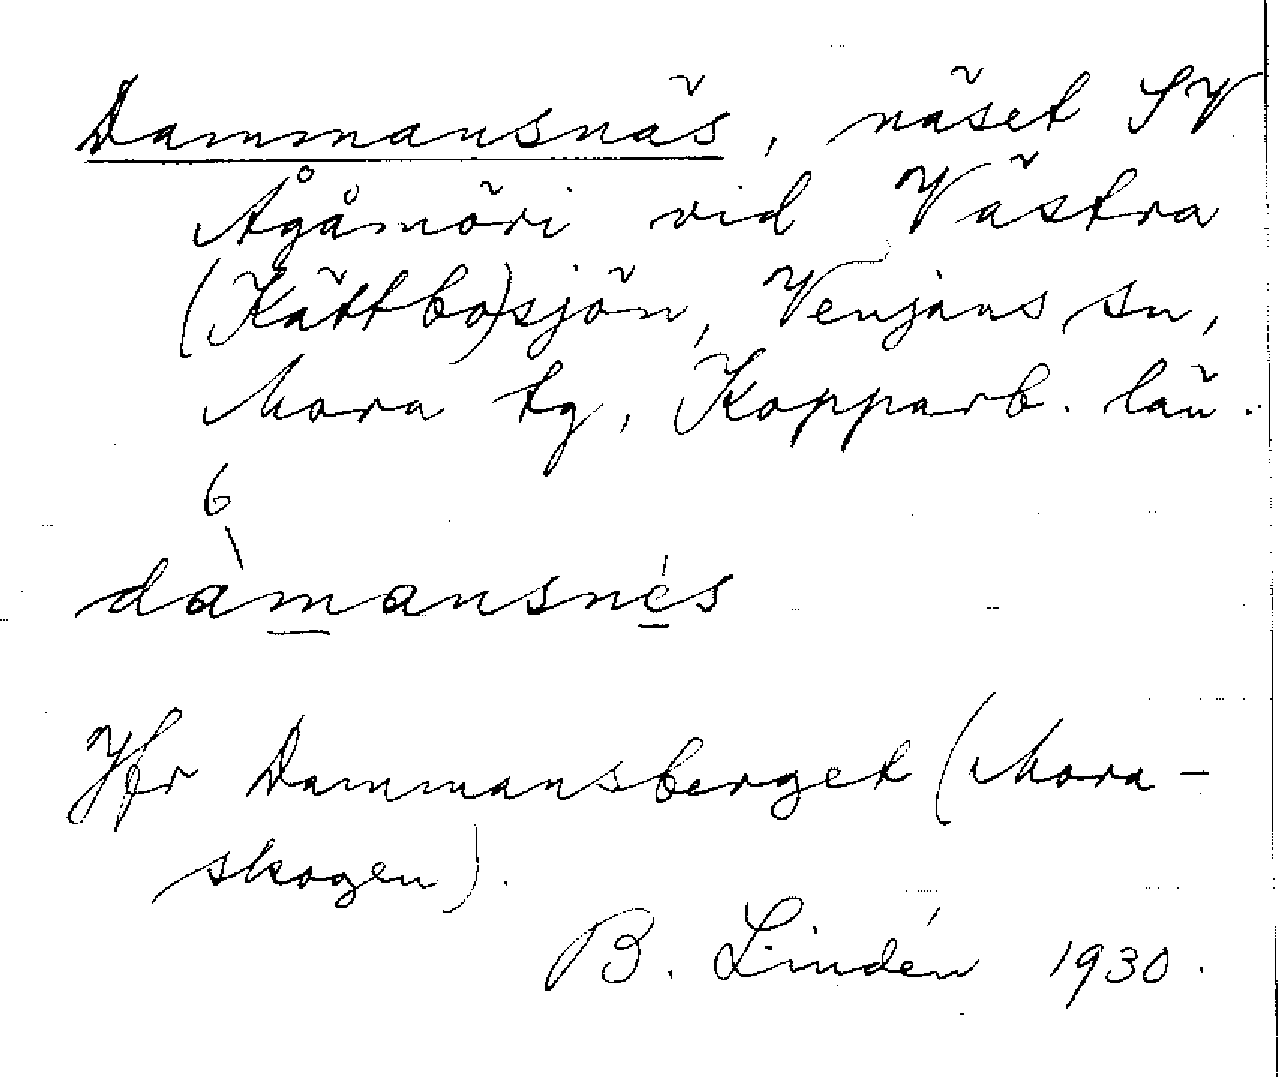 Dammansnäs, näset SV
Ågåmöri vid Västra
(Kättbo)sjön, Venjans sn,
Mora tg, Kopparb. län.
6
dàmansnés
Jfr Dammansberget (Mora-
skogen).
B. Lindén 1930.